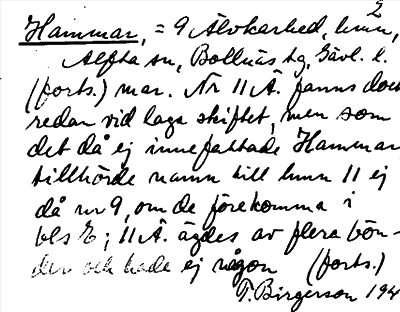 2
Hammar, = 9 Älvkarhed, hmn,
Alfta sn, Bollnäs tg, Gävl. l.
(forts.) mar. Nr 11 Ä. fanns dock
redan vid laga skiftet, men som
det då ej innefattade Hammar,
tillhörde namn till hmn 11 ej
då nr 9, om de förekomma i
bls E; 11 Ä. ägdes av flera bön-
der och hade ej någon (forts.)
T. Birgerson 194